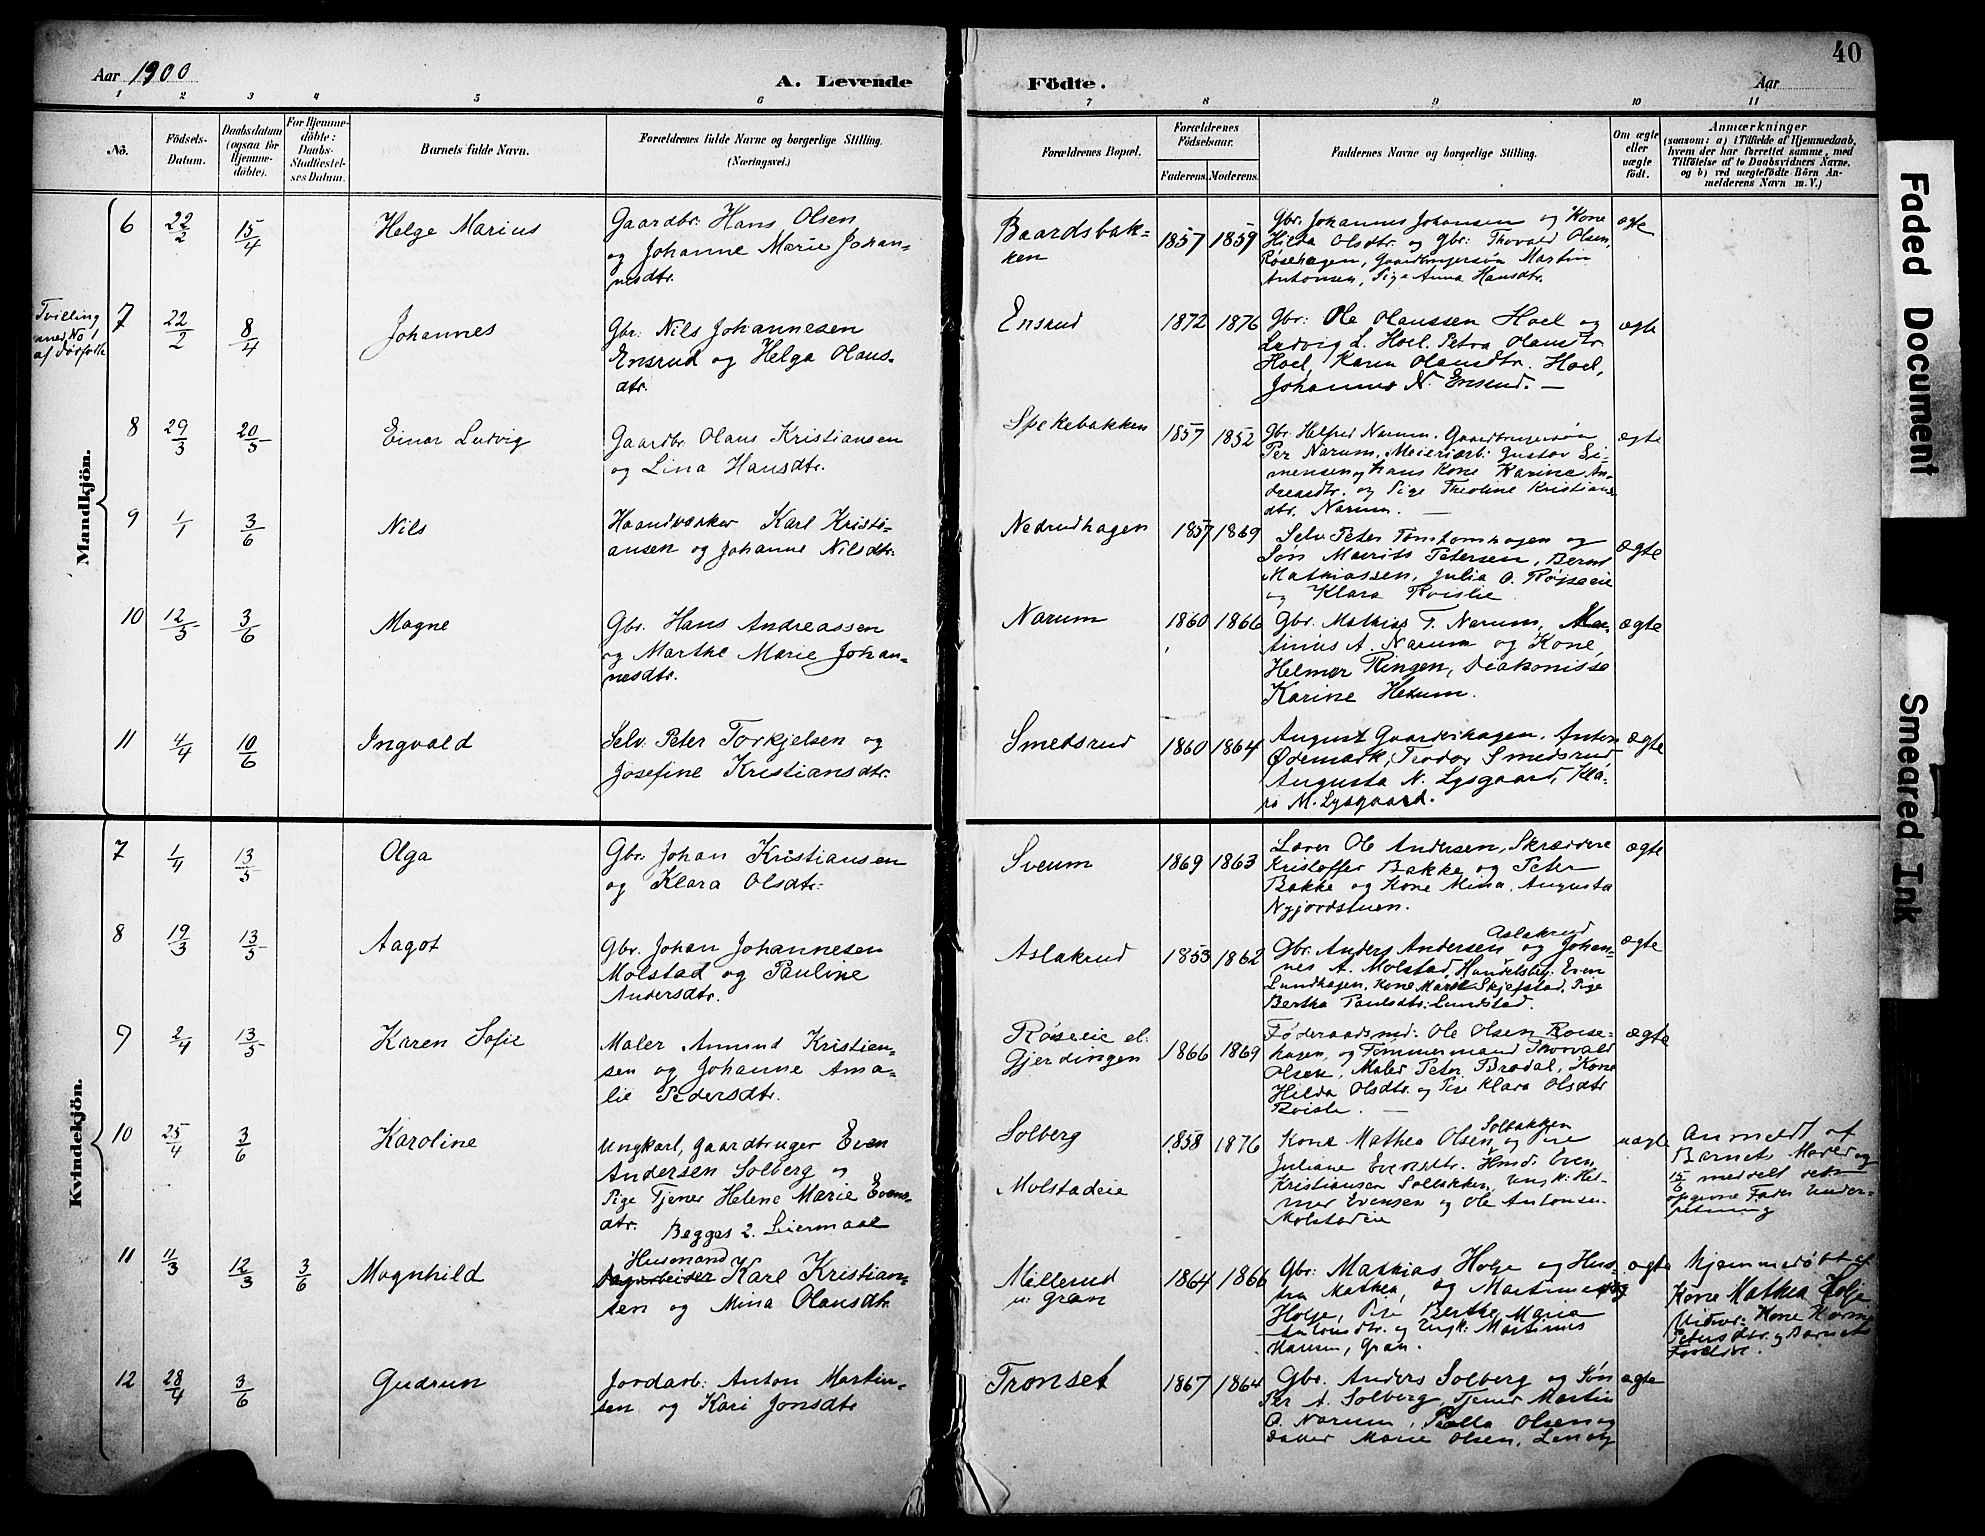 40
Aar 1900
A. Levende
Födte.
Aar
1 2 3 4 5 6 7 8 9 10 11
No.
Födsels-
Datum.
Daabsdatum
(ogsaa for
Hjemme-
döbte).
For Hjemme-
döbte:
Daabs-
Stadfæstel-
ses Datum.
Barnets fulde Navn.
Forældrenes fulde Navne og borgerlige Stilling.
(Næringsvei.)
Forældrenes Bopæl.
Forældrenes
Födselsaar.
Faderens. Moderens.
Faddernes Navne og borgerlige Stilling.
Om ægte
eller
uægte
födt.
Anmærkninger
(saasom: a) i Tilfælde af Hjemmedaab,
hvem der har forrettet samme, med
Tilföielse af to Daabsvidners Navne,
og b) ved uægtefödte Börn An-
melderens Navn m. V.)
Mandkjön.
6 22/2 15/4 Helge Marius
Gaardbr. Hans Olsen
og Johanne Marie Johan-
nesdtr.
Baardsbak-
ken
1857 1859
Gbr. Johannes Johansen og Kone
Hilda Olsdtr. og Gbr: Thovald Olsen,
Røsehagen, Gaardbrugersøn Martin
Antonsen, Pige Anna Hansdtr.
ægte
Tvilling
med No 1
af dødfødte
7 22/2 8/4 Johannes
Gbr: Nils Johannesen
Ensrud og Helga Olaus-
dtr.
Ensrud
1872 1876
Gbr: Ole Olaussen Hoel og
Ludvig L. Hoel. Petra Olausdtr
Hoel, Karen Olausdtr. Hoel,
Johannes N. Ensrud. —
ægte
8 29/3 20/5 Einar Ludvig
Gaardbr. Olaus Kristiansen
og Lina Hansdtr.
Spekebakken
1857 1852
Gbr. Helfred Narum. Gaardbrugersøn
Per Narum, Meieriarb. Gustav Si-
mensen og hans Kone Karine An-
dreasdtr. og Pige Theoline Kristians
dtr. Narum. —
ægte
9 1/1 3/6 Nils
Haandværker Karl Kristi-
ansen og Johanne Nilsdtr.
Nedrudhagen
1857 1869
Selv. Peter Tomtomhagen og
Søn Maurits Petersen, Bernt
Mathiassen, Julia O. Røiseeie
og Klara Roislie
ægte
10 12/5 3/6 Magne
Gbr. Hans Andreassen
og Marthe Marie Johan-
nesdtr.
Narum
1860 1866
Gbr. Mathias T. Narum, Ma-
tinius A. Narum og Kone,
Helmer Ringen, Diakonisse
Karine Hexum.
ægte
11 4/4 10/6 Ingvald
Selv. Peter Torkjelsen og
Josefine Kristiansdtr.
Smedsrud
1860 1864
August Gaardshagen, Anton
Ødemark, Teodor Smedsrud,
Augusta N. Lysgaard, Kla-
ra M. Lysgaard.
ægte
Kvindekjön.
7 1/4 13/5 Olga
Gbr. Johan Kristiansen
og Klara Olsdtr:
Sveum
1869 1863
Lærer Ole Andersen, Skrædder
Kristoffer Bakke og Peter
Bakke og Kone Mina, Augusta
Nyjordstuen.
ægte
8 19/3 13/5 Aagot
Gbr. Johan Johannesen
Molstad og Pauline
Andersdtr.
Aslakrud
1853 1862
Aslakrud
Gbr. Anders Andersen og Johan-
nes A. Molstad, Handelsbg. Even
Lundhagen, Kone Marit Skjefstad, Pige
Bertha Paulsdtr. Lundstad.
ægte
9 2/4 13/5 Karen Sofie
Maler Amund Kristian-
sen og Johanne Ama-
lie Pedersdtr.
Røseeie el:
Gjerdingen
1866 1869
Føderaadsmd: Ole Olsen Roise-
hagen, og Tømmermand Thorvald
Olsen, Maler Peter Brødal, Kone
Hilda Olsdtr. og Pige Klara Olsdtr
Roisle. —
ægte
10 25/4 3/6 Karoline
Ungkarl, Gaardbruger Even
Andersen Solberg og
Pige Tjener Helene Marie Evens-
dtr. Begges 2. Leiermaal
Solberg
Molstadeie
1858 1876
Solbakken
Kone Mathea Olsen og Pige
Juliane Evensdtr. Hmd: Even
Kristiansen Solbakken, Ungk: Hel-
mer Evensen og Ole Antonsen
Molstadeie
uægte
Anmeldt af
Barnets Moder og
15/6 meddelt den
opgivne Fader Under-
retning
11 11/3 12/3 3/6 Magnhild
Husmand
Dagarbeider Karl Kristian-
sen og Mina Olausdtr.
Millerud
u: Gran
1864 1866
Gbr: Mathias Holje og Hus-
tru Mathea, og Martinus
Holje, Pige Berthe Maria
Antonsdtr. og Ungk: Martinus
Hansen, Gran.
ægte
Hjemmedøbt af
Kone Mathea Holje
Vidner: Kone Karine
Petersdtr. og Barnets
Forældre.
12 28/4 3/6 Gudrun
Jordarb. Anton Martin-
sen og Kari Jonsdtr
Tronset
1867 1864
Gbr. Anders Solberg og Søn
Per A. Solberg, Tjener Martin
O. Narum, Olsen og
Datter Marie Olsen,
ægte
Faded Document
Smeared Ink